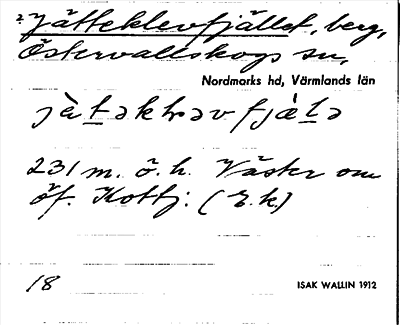 2 Jätteklevfjället, berg,
Östervallskogs sn,
Nordmarks hd, Värmlands län
231 m. ö. h. Väster om
öf. Kottj: (E.k.)
18
ISAK WALLIN 1912